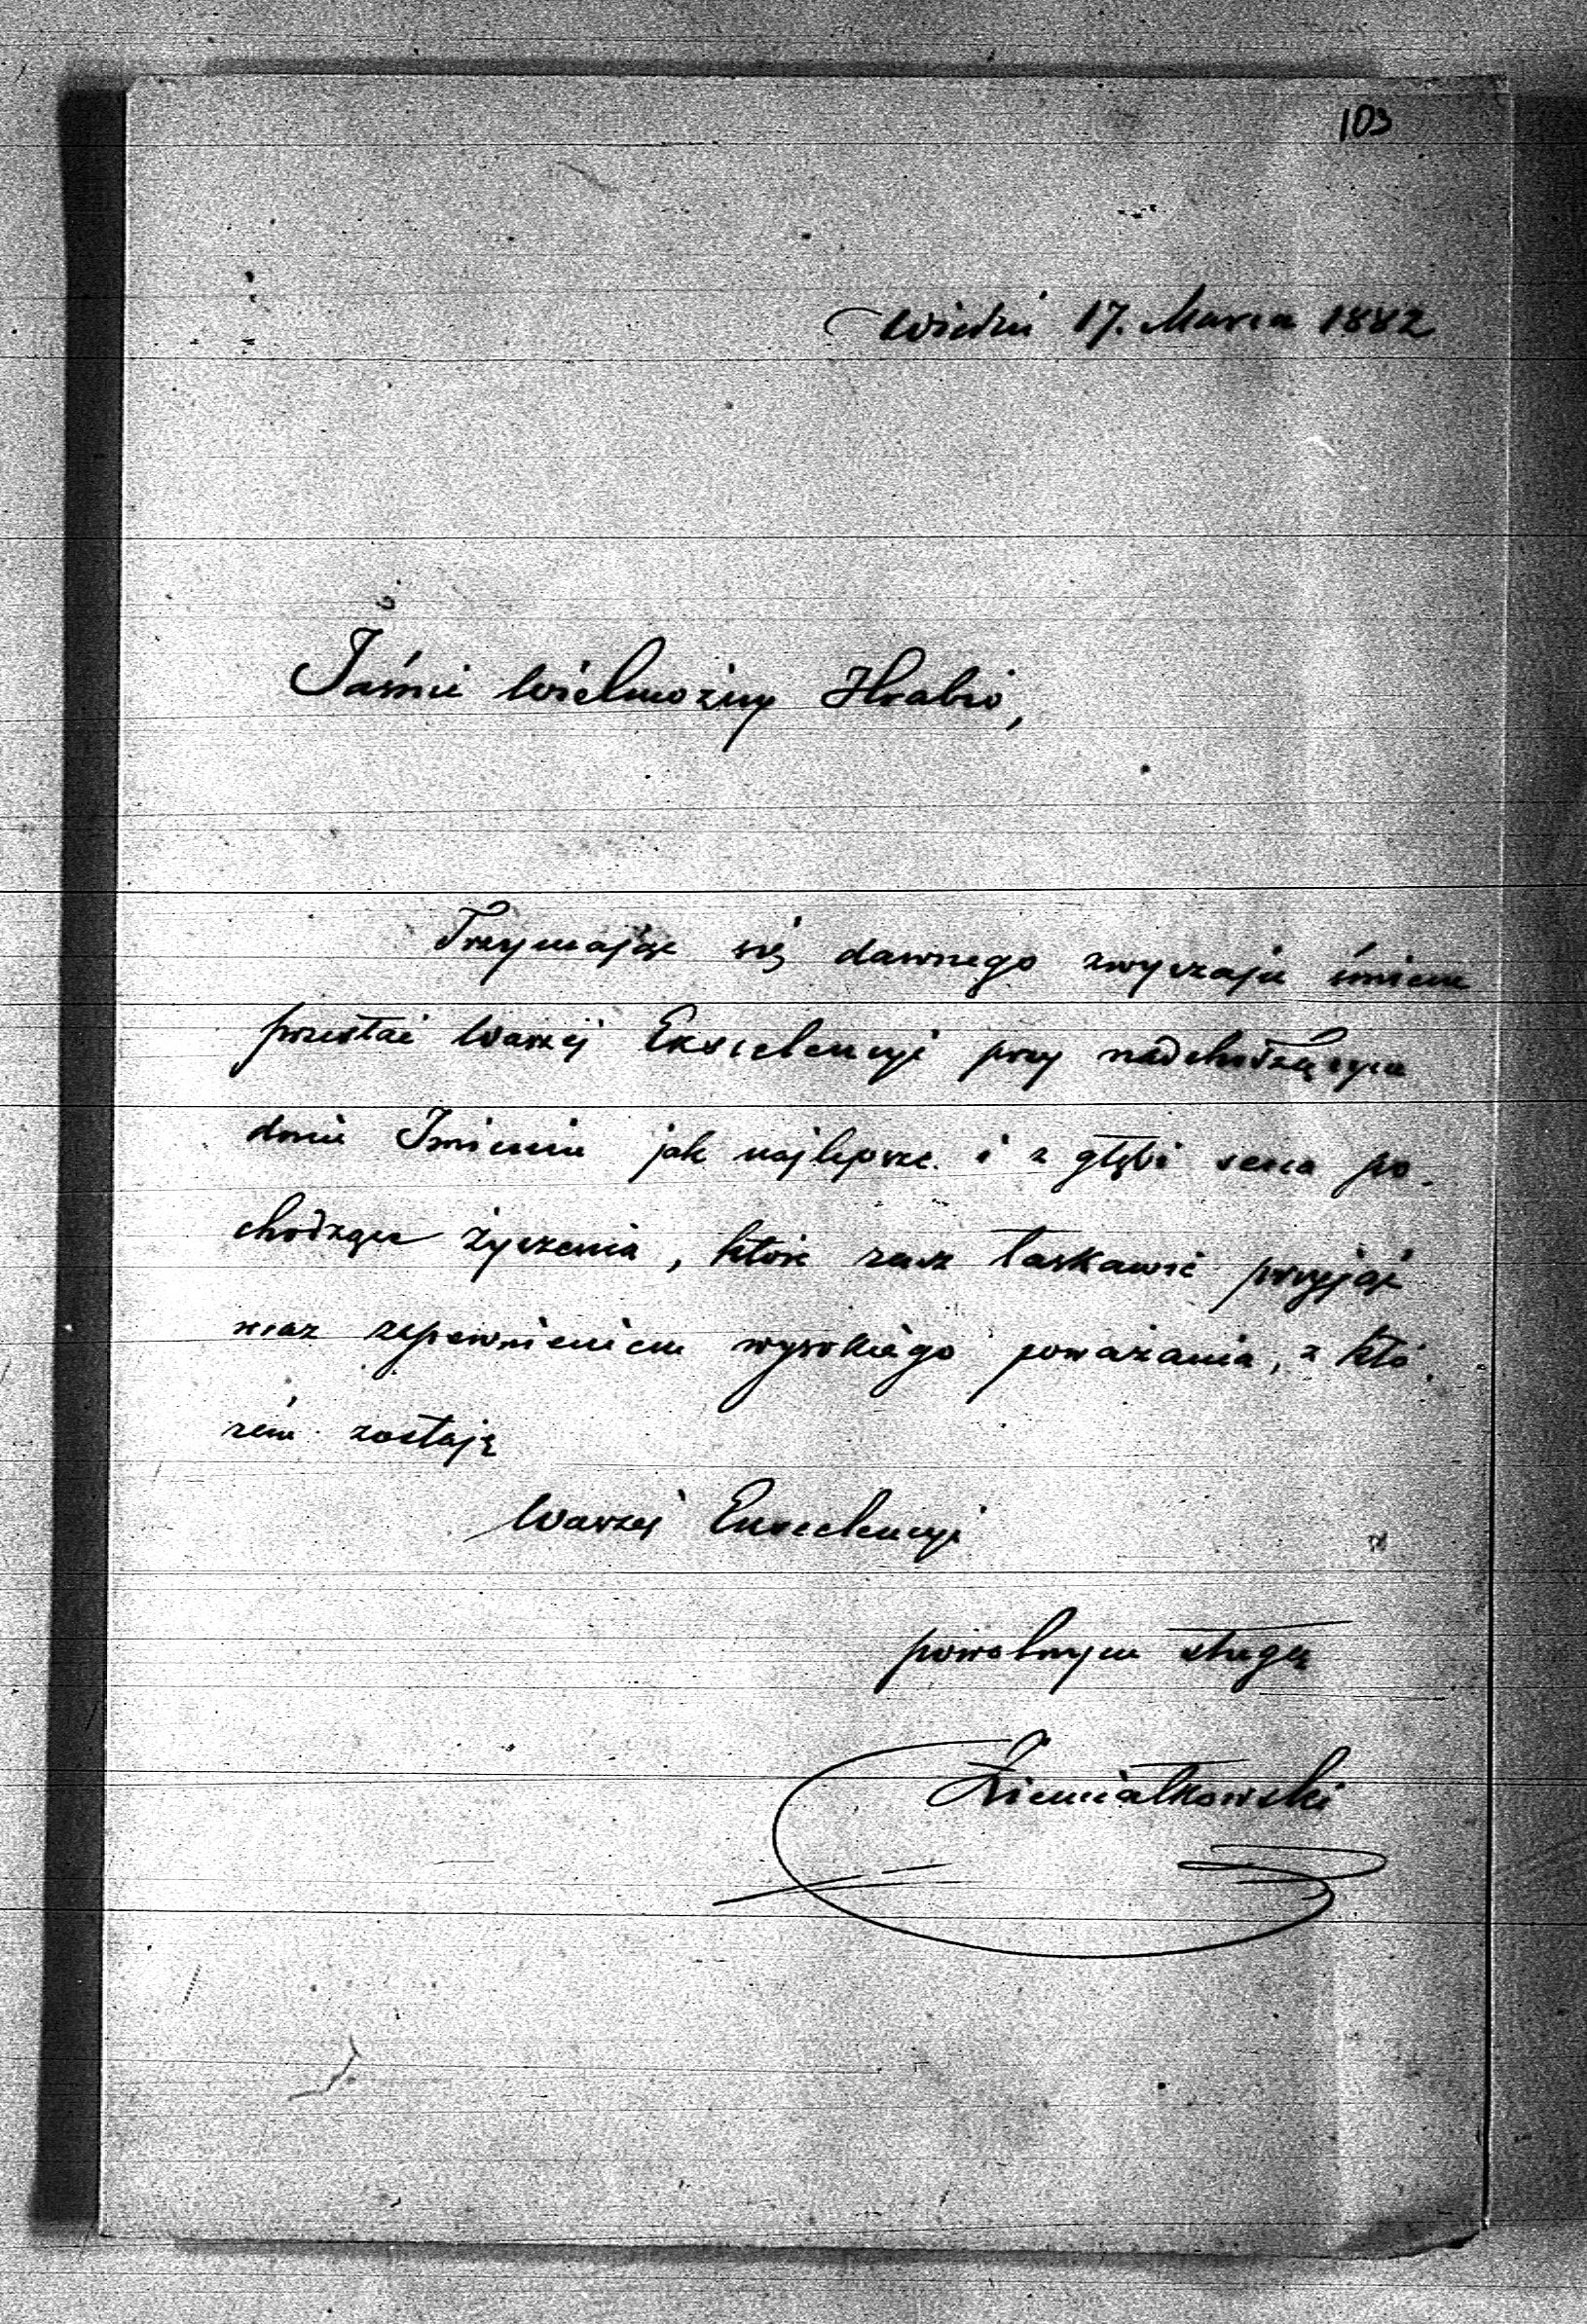 103
Wiedeń 17. Marca 1882
Jaśnie Wielmożny Hrabio,
Trzymając się dawnego zwyczaju śmiem
przesłać Waszej Ekscelencyi przy nadchodzącym
dniu Imienin jak najlepsze i z głębi serca po-
chodzące życzenia, które racz łaskawie przyjąć
wraz zapewnieniem wysokiego poważania, z któ-
rém zostaję
Waszej Exscelencyi
powolnym sługą
Ziemiałkowski